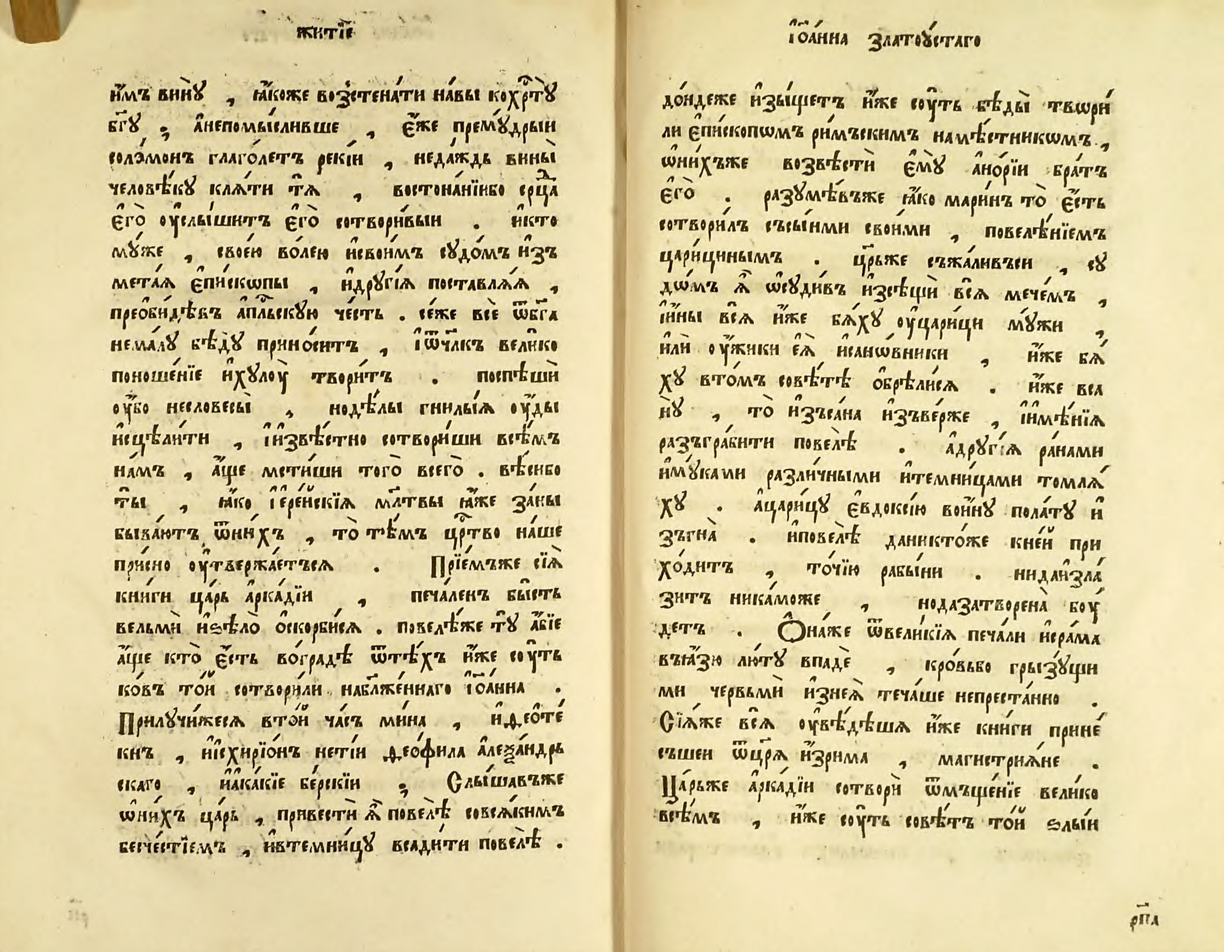 житїе
и҆́мъ винꙋ̀ , ꙗ҆́коже возстена́ти на́вы кохрⷭ҇тꙋ̀
бг҃ꙋ , а҆непомы́сливше , є҆́же премꙋ́дрыи
соло́монъ глаго́летъ рекі́и , неда́ждь вины̀
человѣ́кꙋ клѧ́ти тѧ̀ , востона́нїибо срⷣца
є҆гѡ̀ оу҆слы́шитъ є҆го̀ сотвори́выи . и҆кто
мꙋ́же , свое́ю во́лею и҆свои́мъ сꙋдо́мъ и҆зъ
мета́ѧ є҆пи́скѡпы , и҆дрꙋгі́ѧ поставлѧ́ѧ ,
преѻби́дѣвъ а҆пⷭ҇льскꙋю че́сть . се́же все ѿбг҃а
нема́лꙋ бѣ́дꙋ прино́ситъ , і҆ѿчл҃къ вели́ко
поноше́нїе и҆хꙋ́лоу твори́тъ . поспѣшѝ
оу҆́бо несловесы̀ , нодѣ́лы гнилы́ѧ оу҆́ды
и҆сцѣли́ти , і҆и҆звѣ́стно сотвори́ши всѣ́мъ
на́мъ , а҆́ще мети́ши того̀ всего̀ . вѣ́сибо
ты̀ , ꙗ҆́ко і҆єре́йскїѧ мл҃твы ꙗ҆́же за́ны
быва́ютъ ѿни́хъ , то̀ тѣ́мъ црⷭ҇тво на́ше
при́сно оу҆твержа́етъсѧ . Прїе́мъже сїѧ̀
кни́ги ца́рь а҆рка́дїи , печа́ленъ бы́сть
вельмѝ и҆ѕѣло̀ ѻ҆скорби́сѧ . повелѣ́же тꙋ̀ а҆́бїе
а҆́ще кто̀ є҆́сть вогра́дѣ ѿтѣ́хъ и҆́же сꙋ́ть
ко́въ то́й сотвори́ли набл҃же́ннаго і҆ѻа́нна .
Прилꙋчи́жесѧ вто́й ча́съ ми́на , и҆ѳео́те
кнъ , и҆і҆схирїо́нъ нетїѝ ѳео́фила а҆леѯа́ндрь
скаго , и҆а҆ка́кїе бе́рскїи , Слы́шавъже
ѡ҆ни́хъ ца́рь , привестѝ ѧ҆̀ повелѣ̀ совсѧ́кимъ
бесче́стїемъ , и҆втемни́цꙋ всади́ти повелѣ̀ .
і҆ѻа́нна златоу́стаго
до́ндеже и҆зы́щетъ и҆́же сꙋ́ть бѣ́ды̀ твори́
ли є҆пи́скопѡмъ ри́мъскимъ намѣ́стникѡмъ ,
ѡ҆ни́хъже возвѣстѝ є҆мꙋ̀ а҆но́рїи бра́тъ
є҆го̀ . разꙋмѣ́въже ꙗ҆́ко мари́нъ то̀ є҆́сть
сотвори́лъ съсы́ими свои́ми , повелѣ́нїемъ
цари́цинымъ . цр҃ьже съжа́ливъси , сꙋ
до́мъ ѧ҆̀ ѡ҆сꙋди́въ и҆зсѣщѝ всѧ̀ мече́мъ ,
і҆и҆́ны всѧ̀ и҆́же бѧ́хꙋ оу҆цари́ци мꙋ́жи ,
и҆лѝ оу҆́жики є҆ѧ̀ и҆сано́вники , и҆́же бѧ́
хꙋ вто́мъ совѣ́тѣ ѻ҆брѣ́лисѧ . и҆́же вса
нꙋ̀ , то̀ и҆зъса́на и҆зъве́рже , і҆и҆мѣ́нїѧ
разъгра́бити повелѣ̀ . а҆дрꙋгі́ѧ ра́нами
и҆мꙋ́ками разли́чными и҆темни́цами томлѧ́
хꙋ . а҆цари́цꙋ є҆ѵдоксі́ю во́йнꙋ пола́тꙋ и҆
зъгна̀ . и҆повелѣ̀ даникто́же кне́й при
хо́дитъ , то́чїю рабы́ни . нида́излѧ́
зитъ никамо́же , нодазатворена̀ бꙋ́
детъ . Ѻ҆на́же ѿвели́кїѧ печа́ли и҆сра́ма
въꙗ҆́зю лю́тꙋ впадѐ , кро́вьбо грызꙋ́щи
ми че́рвьми и҆знеѧ̀ теча́ше непреста́нно .
Сїѧ́же всѧ̀ оу҆вѣ́дѣша и҆́же кни́ги прине́
съшеи ѿцр҃ѧ и҆зри́ма , магистрїѧ́не .
Ца́рьже а҆рка́дїи сотворѝ ѿмъще́нїе вели́ко
всѣ́мъ , и҆́же сꙋ́ть совѣ́тъ то́й ѕлы́и
рп҃а